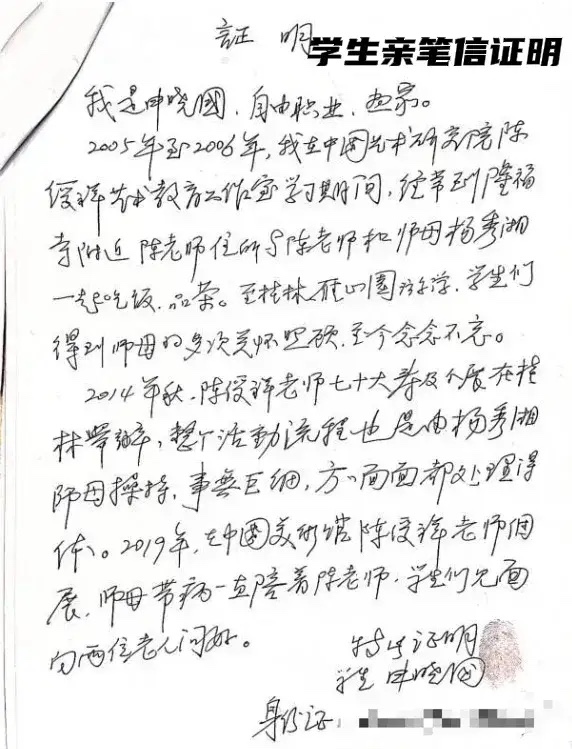 証明
学生亲笔信证明
我是申晓國,自由职业,画家。
2005年至2006年,我在中国艺术研究院陈
绶祥艺术教育工作室学习期间,经常到隆福
寺附近陈老师住所与陈老师和师母杨秀湘
一起吃饭、品茶。至桂林雁山園游学,学生们
得到师母的多次关怀照顾,至今念念不忘。
2014年秋,陈绶祥老师七十大寿及个展在桂
林举辦,整个活动流程也是由杨秀湘
师母操持,事無巨细,方々面面都处理得
体。2019年,在中國美術馆陈绶祥老师個
展,师母带病一直陪著陈老师,学生们见面
向两位老人问好。
特此证明
学生 申晓國
身份证: